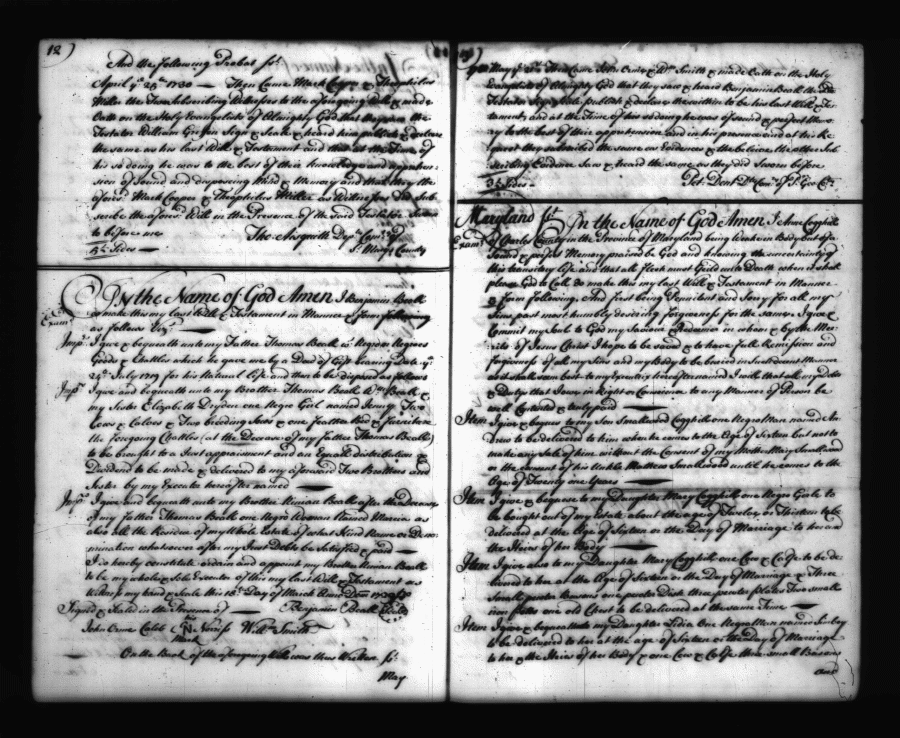 12)
And the following Probat Sst.
April ye 28th 1730 — Then Came Mark Cooper & Theophilus
Miller the Two Subscribing Witnesses to the aforegoing Will & made
Oath on the Holy Evangelists of Almighty God that they saw the
Testator William Green Sign & Seale & heard him publish & declare
the same as his last Will & Testament and that at the Time of
his so doing he was to the best of their knowledge and apprehen-
sion of Sound and disposing Mind & Memory and that they the
aforesd. Mark Cooper & Theophilus Miller as Witnesses did Sub-
scribe the aforesd. Will in the Presence of the Said Testator Sworn
to before me
Tho: Aisquith Depty. Comry. of
St. Marys County
Sides —
In the Name of God Amen I Benjamin Beall
do make this my last Will & Testament in Manner & form following
Examd.
as follows Vizt.
Imps. I give & bequeath unto my Father Thomas Beall Negroes
Goods & Chattles which he gave me by a Deed of Gift bearing Date ye
25th July 1719 for his Natural life and then to be disposed as follows
Imps. I give and bequeath unto my Brother Thomas Beall &
my Sister Elizabeth Dryden one Negro Girl named Jenny Two
Cows & Calves & Two breeding Sows & one feather Bed & furniture
the foregoing Chattles (at the Decease of my father Thomas Beall)
to be brought to a Just appraisment and an Equall distribution &
Dividend to be made & delivered to my aforesaid Two Brothers and
Sister by my Executor hereafter named
Imps. I give and bequeath unto my Brother Ninian Beall after the Decease
of my father Thomas Beall one Negro Woman Named Maria as
also all the Residue of my Whole Estate of what Kind Name or Deno-
mination whatsoever after my Just Debts be Satisfied & paid
I do hereby constitute ordain and appoint my Brother Ninian Beall
to be my whole & Sole Executor of this my last Will & Testament as
Witness my hand & Seale this 18th Day of March Anno Dom
Signed & Seald in the Presence of — Benjamin Beall (Seale)
John Orme Caleb N Norriss Will Smith
his
Mark
On the Back of the aforegoing Will was thus Written Sst.
May
May ye Then Came John Orme & Wm. Smith & made Oath on the Holy
Evangelists of Almighty God that they saw & heard Benjamin Beall the
Testator Sign Seale publish & declare the within to be his last Will & Tes-
tament, and at the Time of his so doing he was of sound & perfect Memo-
ry to the best of their apprehension and in his presence and at his Re-
quest they subscribed the same as Evidences & the believe the other Sub-
scribing Evidence Saw & heard the same as they did Sworn before
Sides — Pet: Dent Dty. Comry. of Pr. Geo: Cty.
Maryland Sst. In the Name of God Amen I Anne Coghill
Examd. of Charles County in the Province of Maryland being Weak in Body but of a
Sound & perfect Memory praised be God and knowing the uncertainty of
this transitory life and that all flesh must Yeild unto Death when it shal
please God to Call Do make this my last Will & Testament in Manner
& form following. And first being Penitent and Sorry for all my
Sins past most humbly desiring forgiveness for the same. I give &
Commit my Soul to God my Saviour & Redeemer in whom & by the Mer-
its of Jesus Christ I hope to be saved & to have full Remission and
forgiveness of all my Sins and my Body to be buried in Such decent Manner
as it shall seem best to my Executor hereafter named I will that all my debts
& Dutys that I owe in Right or Conscience to any Manner of Person be
well Contented & truly paid
Item I give & bequeath to my Son Smallwood Coghill one Negro Man named An-
drew to be delivered to him when he comes to the Age of Sixteen but not to
make any Sale of him without the Consent of my Mother Mary Smallwood
or the consent of his Unkle Matthew Smallwood until he comes to the
Age of Twenty one Years
Item I give & bequeath to my Daughter Mary Coghill one Negro Girle to
be bought out of my Estate about the age of Twelve or Thirteen to be
delivered at the Age of Sixteen or the Day of Marriage to her and
the Heirs of her Body
Item I give also to my Daughter Mary Coghill one Cow & Calfe to be de-
livered to her at the Age of Sixteen or the Day of Marriage & Three
Small pewter Basons one pewter Dish three pewter plates Two small
iron potts one old Chest to be delivered at the same Time
Item I give & bequeath unto my Daughter Lidia One Negro Man named
to be delivered to her at the age of Sixteen or the Day of Marriage
to her & the Heirs of her Body & one Cow & Calfe three small Basons
and